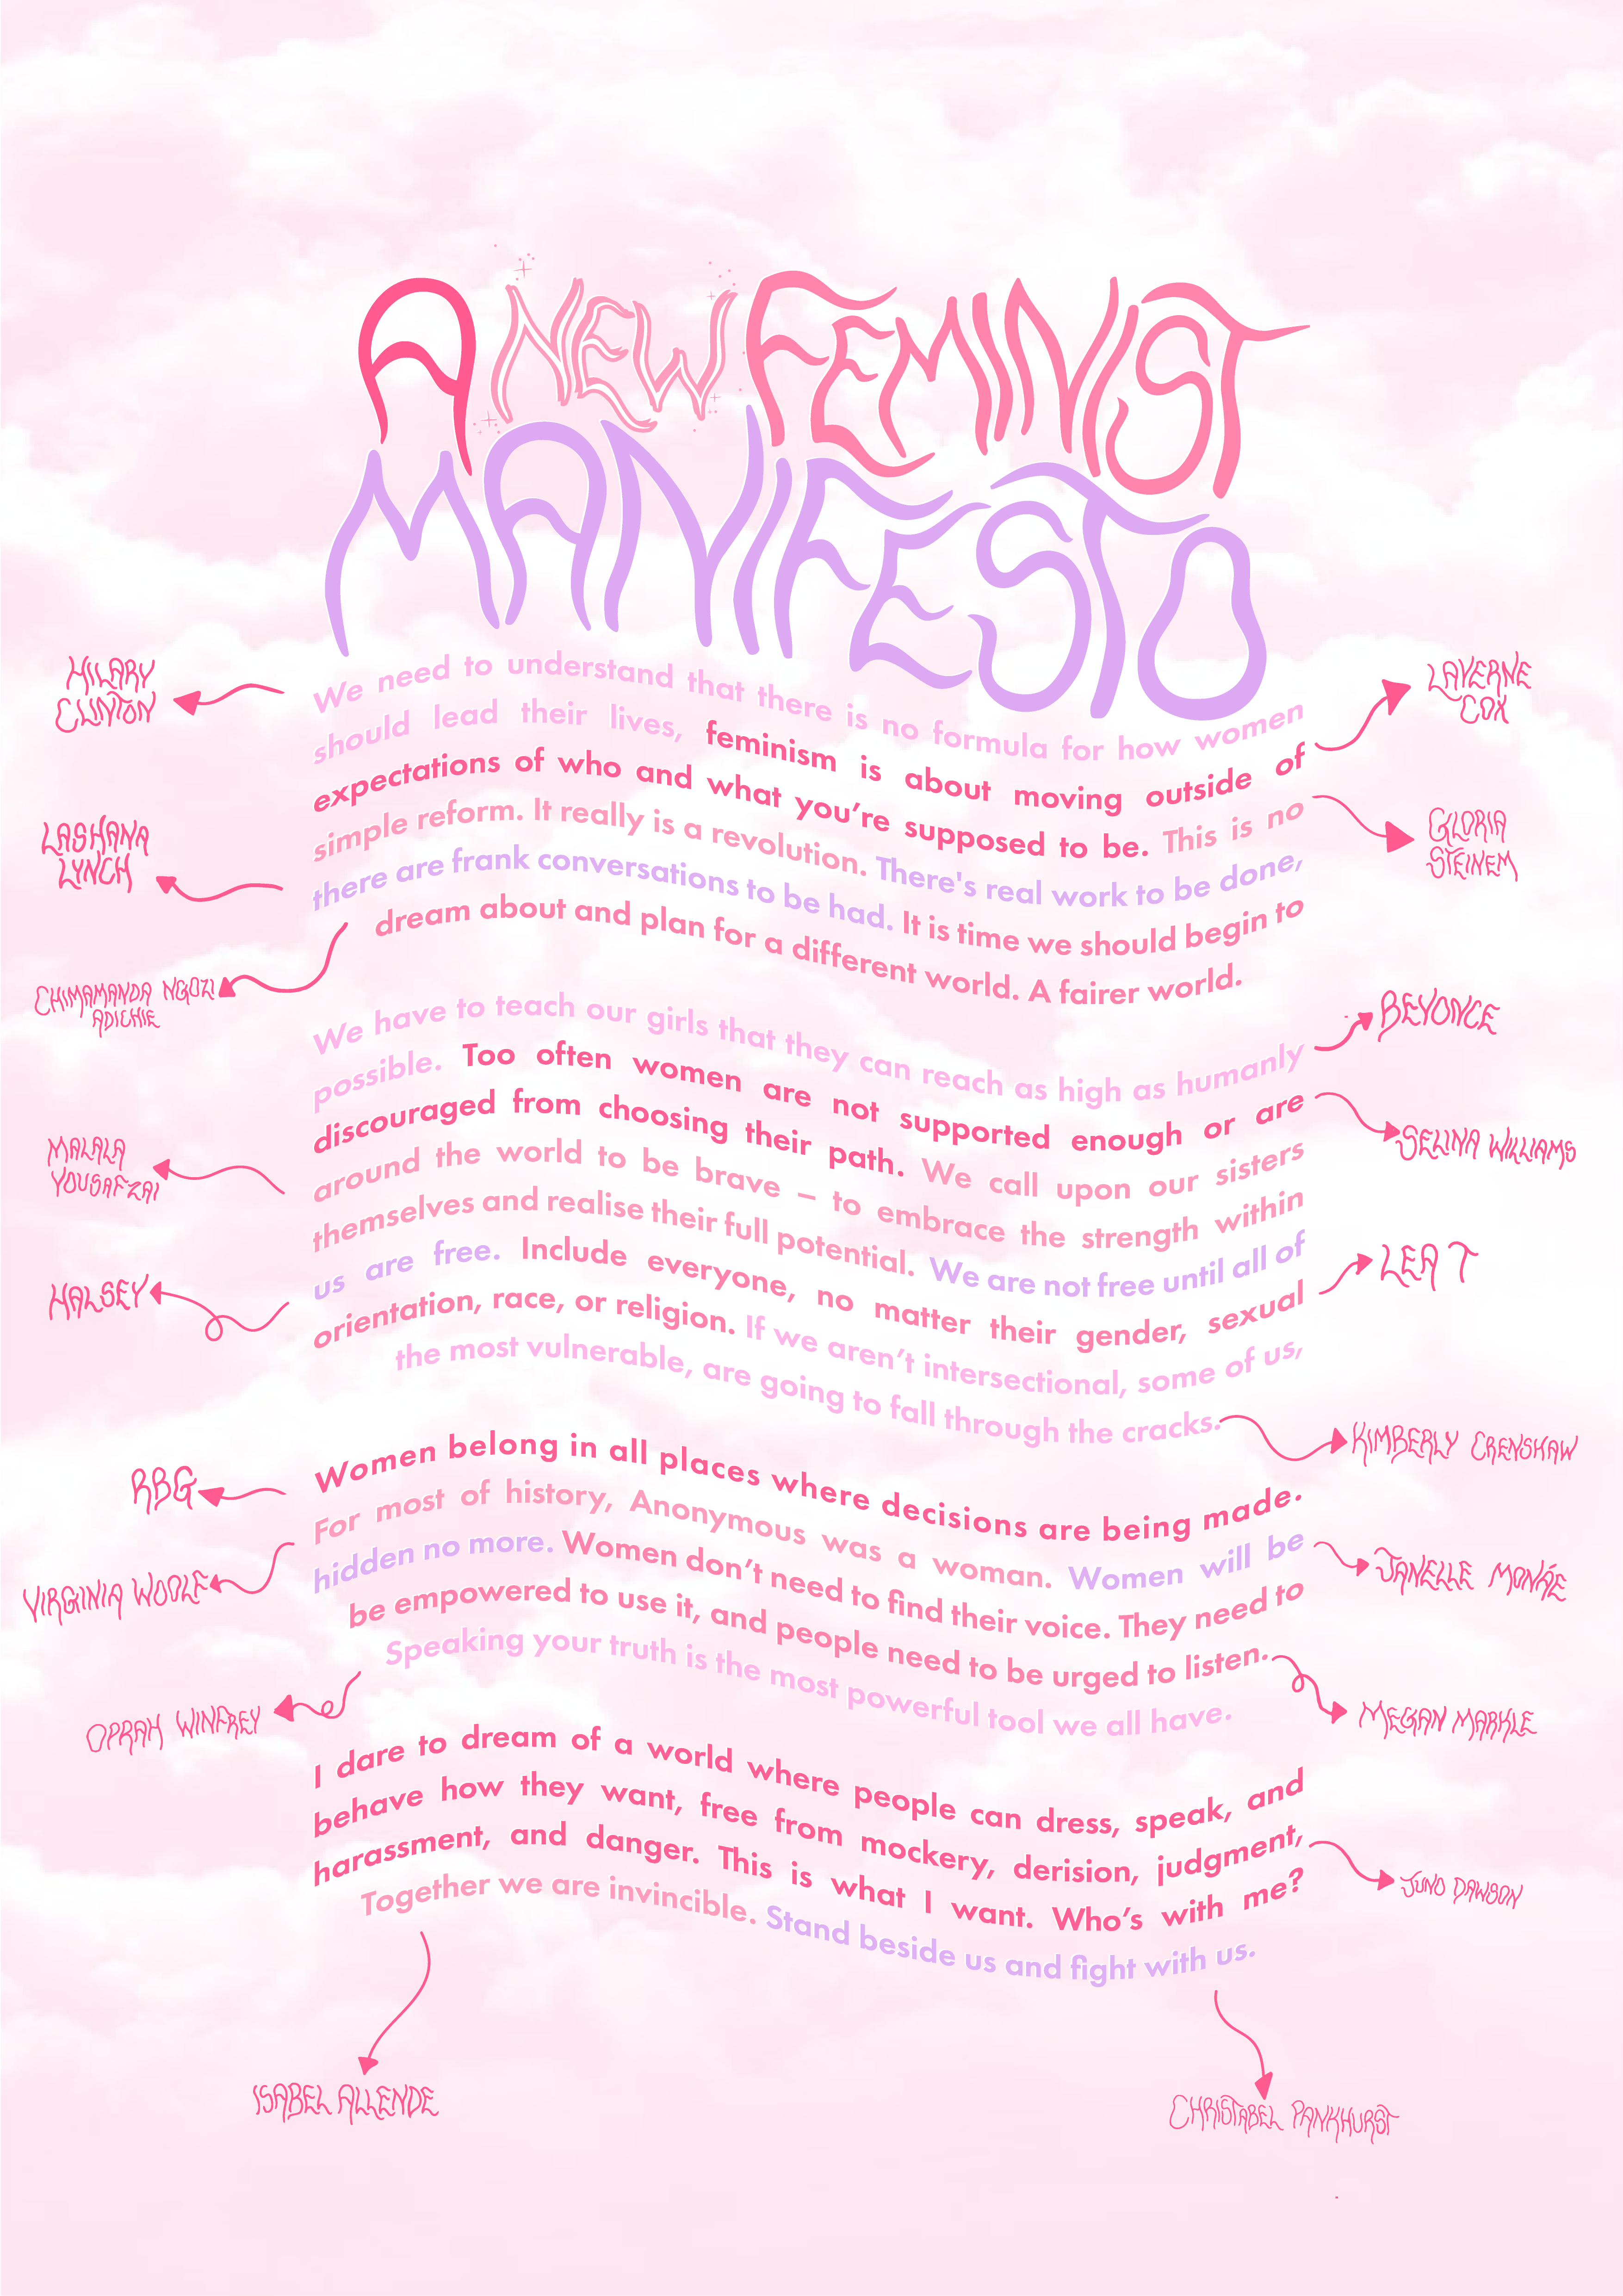 A NEW FEMINIST
MANIFESTO
HILARY
CLINTON
LAVERNE
COX
We need to understand that there is no formula for how women
should lead their lives, feminism is about moving outside of
expectations of who and what you're supposed to be. This is no
simple reform. It really is a revolution. There's real work to be done,
there are frank conversations to be had. It is time we should begin to
dream about and plan for a different world. A fairer world.
LASHANA
LYNCH
GLORIA
STEINEM
CHIMAMANDA NGOZI
ADICHIE
BEYONCE
We have to teach our girls that they can reach as high as humanly
possible. Too often women are not supported enough or are
discouraged from choosing their path. We call upon our sisters
around the world to be brave – to embrace the strength within
themselves and realise their full potential. We are not free until all of
us are free. Include everyone, no matter their gender, sexual
orientation, race, or religion. If we aren't intersectional, some of us,
the most vulnerable, are going to fall through the cracks.
MALALA
YOUSAFZAI
SELINA WILLIAMS
HALSEY
LEA T
KIMBERLY CRENSHAW
RBG
Women belong in all places where decisions are being made.
For most of history, Anonymous was a woman. Women will be
hidden no more. Women don't need to find their voice. They need to
be empowered to use it, and people need to be urged to listen.
Speaking your truth is the most powerful tool we all have.
VIRGINIA WOOLF
JANELLE MONÁE
OPRAH WINFREY
MEGAN MARKLE
I dare to dream of a world where people can dress, speak, and
behave how they want, free from mockery, derision, judgment,
harassment, and danger. This is what I want. Who's with me?
Together we are invincible. Stand beside us and fight with us.
JUNO DAWSON
ISABEL ALLENDE
CHRISTABEL PANKHURST